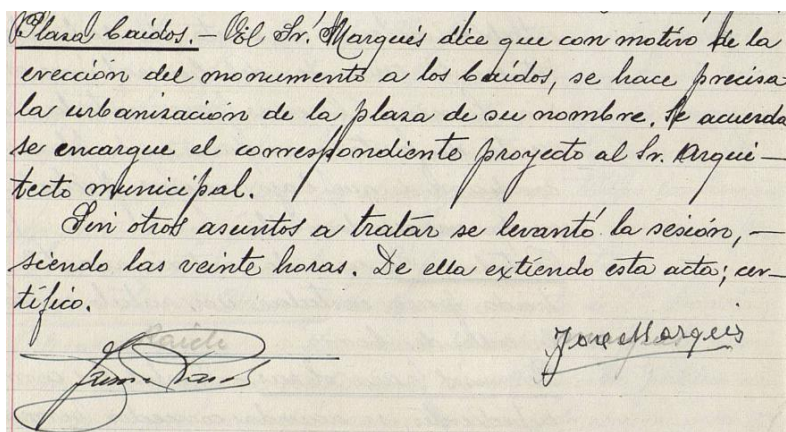 Plaza Caídos.- El Sr. Marqués dice que con motivo de la
erección del monumento a los Caídos, se hace precisa
la urbanización de la plaza de su nombre. Se acuerda
se encargue el correspondiente proyecto al Sr. Arqui-
tecto municipal.
Sin otros asuntos a tratar se levantó la sesión,-
siendo las veinte horas. De ella extiendo esta acta; cer-
tífico.
Jose Marqués